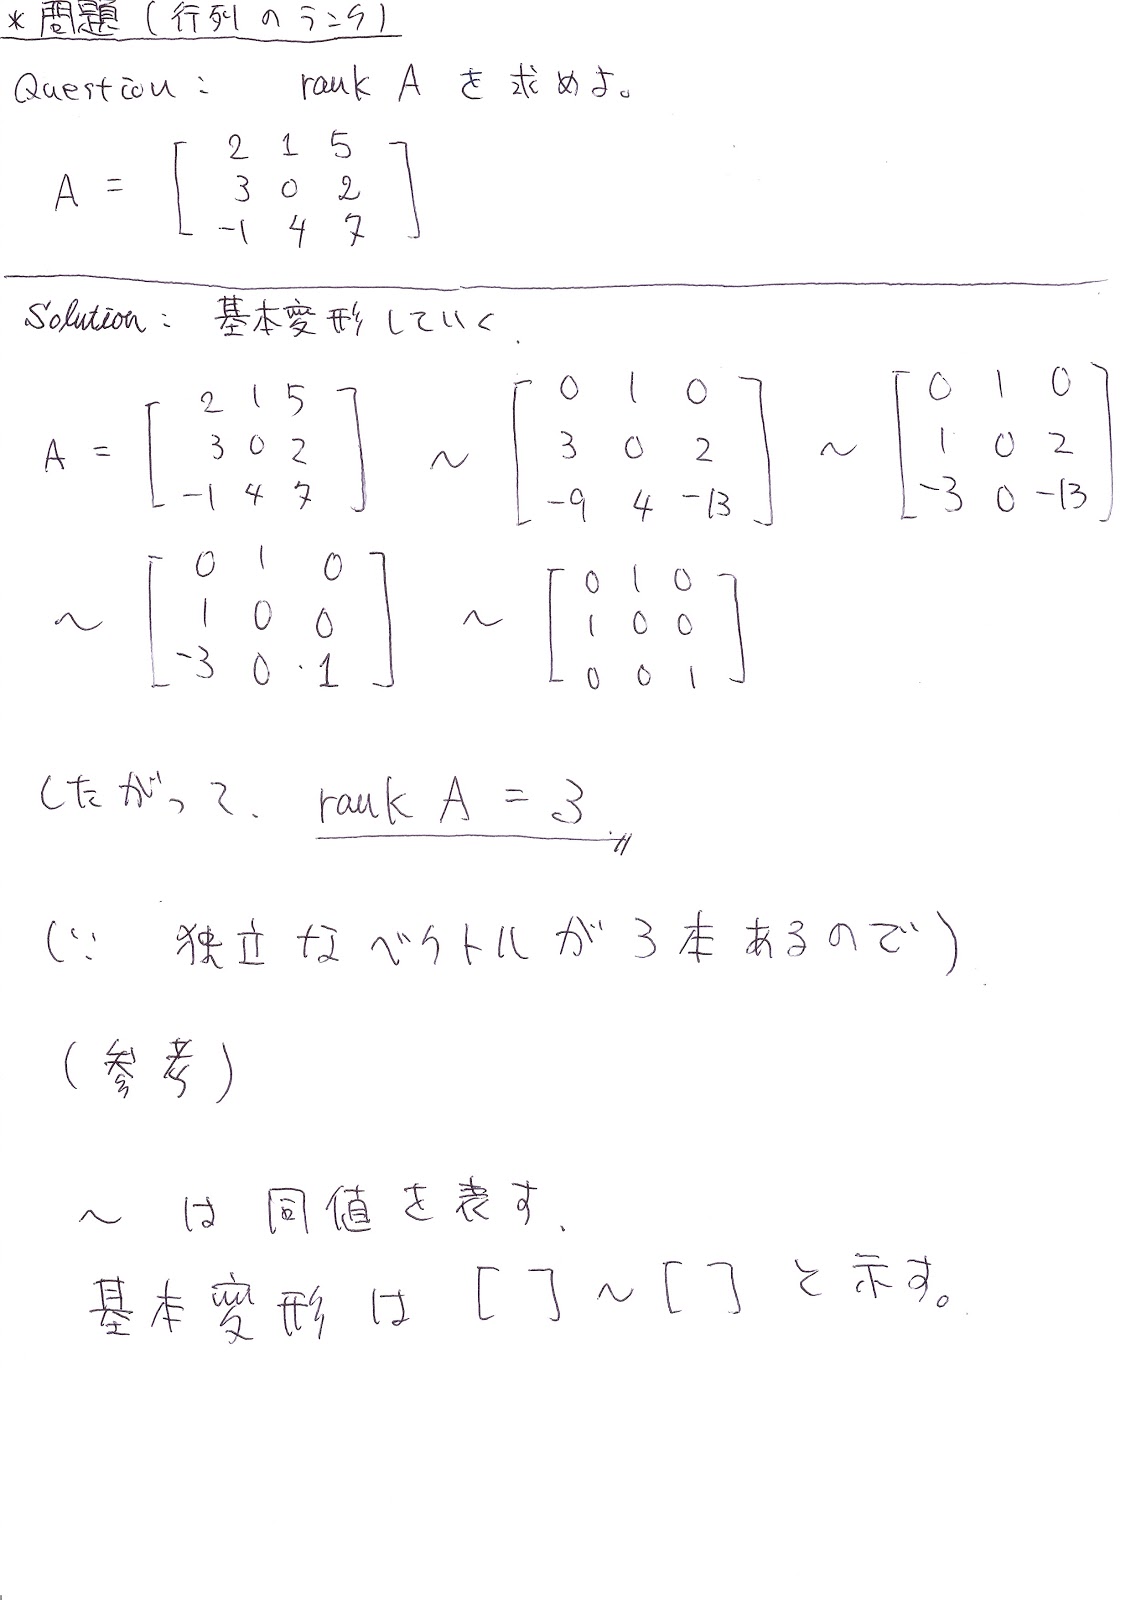 *問題(行列のランク)
Question: rank A を求めよ。
A = [ 2 1 5
3 0 2
-1 4 7 ]
Solution: 基本変形していく.
A = [ 2 1 5 ] ~ [ 0 1 0 ] ~ [ 0 1 0 ]
[ 3 0 2 ] [ 3 0 2 ] [ 1 0 2 ]
[ -1 4 7 ] [ -9 4 -13 ] [ -3 0 -13 ]
~ [ 0 1 0 ] ~ [ 0 1 0 ]
[ 1 0 0 ] [ 1 0 0 ]
[ -3 0 1 ] [ 0 0 1 ]
したがって、 rank A = 3
(∵ 独立なベクトルが3本あるので)
(参考)
~ は 同値を表す、
基本変形は [ ] ~ [ ] と示す。